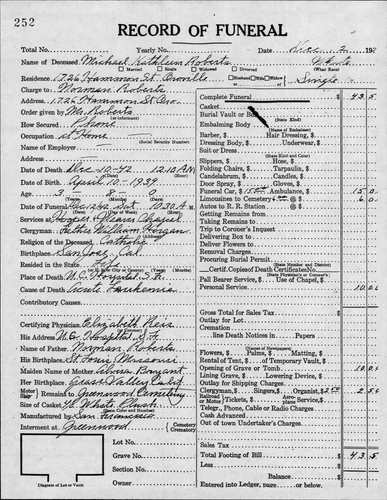 252
RECORD OF FUNERAL
Total No. Yearly No. Date Dec. 2 19
Name of Deceased Michael Kathleen Roberts White
Married Single Widowed Divorced (What Race)
Residence 1726 Hammon St. Oroville Husband Wife Widow Single
Charge to Norman Roberts
Address 1726 Hammon St Oro.
Order given by Mr Roberts
How Secured Phone
Occupation at Home
(Social Security Number)
Name of Employer
Address
Date of Death Dec 10-42 12.10 A.M.
Date of Birth April 10 - 1939
Age 3 - 8 - 0
(Years) (Months) (Days)
10.30 A.M.
Services at Chapel
Clergyman Father William Horgan
Religion of the Deceased Catholic
Birthplace San Jose, Cal.
Resided in the State
Place of Death U.C. Hospital S.F.
Cause of Death Acute Leukemia
Contributory Causes
Certifying Physician Elizabeth Reis
His Address U.C. Hospital S.F.
Name of Father Norman Roberts
His Birthplace St Louis Missouri
Maiden Name of Mother Bryant
Her Birthplace Grass Valley Calif
Remains to Greenwood Cemetery
Size of Casket White Plush
(State Color and Number)
Manufactured by San Francisco
Interment at Greenwood Cemetery Crematory
Lot No.
Grave No.
Section No.
Diagram of Lot or Vault
Owner
Complete Funeral $ 43.5
Casket
Burial Vault or Box
(State Kind)
Embalming Body
(Name of Embalmer)
Barber, $ Hair Dressing, $
Dressing Body, $ Underwear, $
Suit or Dress
(State Kind and Color)
Slippers, $ Hose, $
Folding Chairs, $ Tarpaulin, $
Candelabrum, $ Candles, $
Door Spray, $ Gloves, $
Funeral Car, $ Ambulance, $ 15.0
Limousines to Cemetery @ $ 6.0
Autos to R. R. Station @ $
Getting Remains from
Taking Remains to
Trip to Coroner's Inquest
Delivering Box to
Deliver Flowers to
Removal Charges
Procuring Burial Permit
Certif. Copies of Death Certificates No.
(State Physician's or Coroner's)
Pall Bearer Service, $ Use of Chapel, $
Personal Service 10.0
Gross Total for Sales Tax $
Outlay for Lot
Cremation
line Death Notices in Papers
(Names of Newspapers)
Flowers, $ Palms, $ Matting, $
Rental of Tent, $ of Temporary Vault, $
Opening of Grave or Tomb 10.0
Lining Grave, $ Lowering Device, $
Outlay for Shipping Charges
Clergyman, $ Singers, $ Organist, $ 2.50 2.50
Railroad or Motor Tickets, $ Aero-plane Service, $
Telegr., Phone, Cable or Radio Charges
Cash Advanced
Out of town Undertaker's Charges
Sales Tax
Total Footing of Bill $ 43.5
Less
Balance $
Entered into Ledger, page or below.